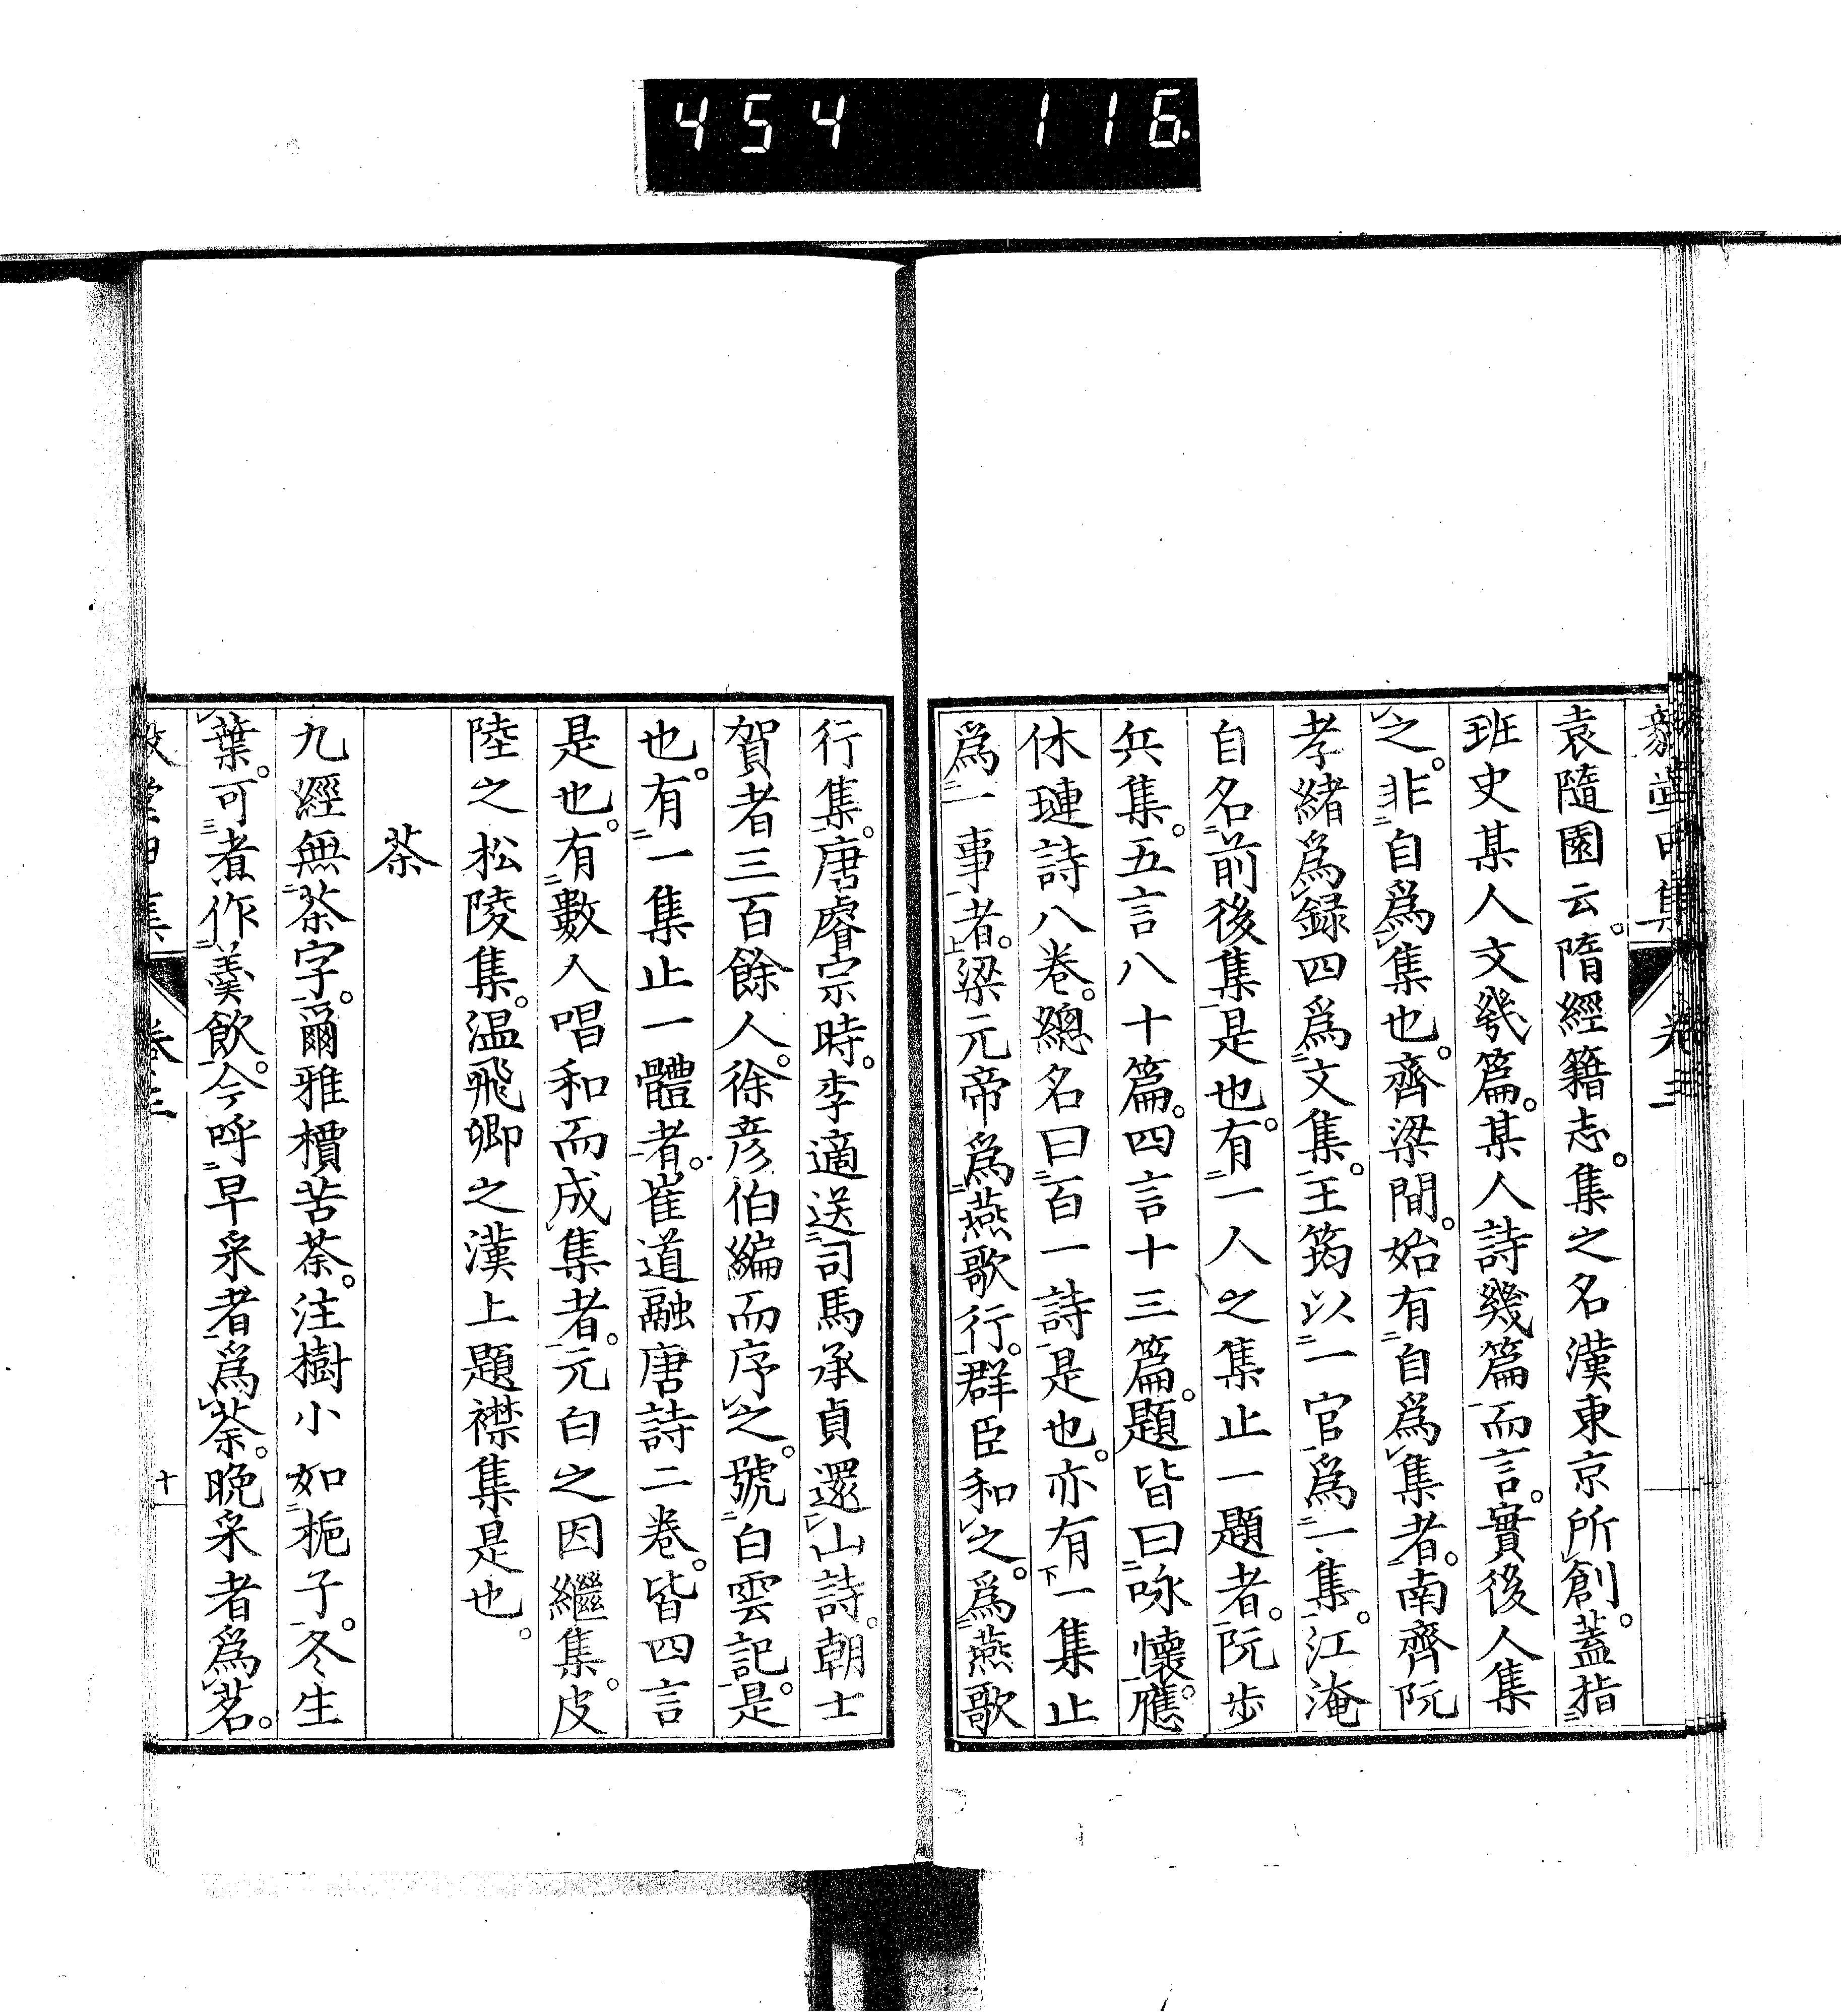 454 116.
毅堂甲集 卷三
袁隨園云。隋經籍志。集之名漢東京所創。蓋指
班史某人文幾篇。某人詩幾篇而言。實後人集
之。非自爲集也。齊梁間。始有自爲集者。南齊阮
孝緒爲錄四爲文集。王筠以一官爲一集。江淹
自名前後集是也。有一人之集止一題者。阮步
兵集。五言八十篇。四言十三篇。題皆曰咏懷。應
休璉詩八卷。總名曰百一詩是也。亦有一集止
爲一事者。梁元帝爲燕歌行。群臣和之。爲燕歌
行集。唐睿宗時。李適送司馬承貞還山詩。朝士
賀者三百餘人。徐彦伯編而序之。號白雲記。是
也。有一集止一體者。崔道融唐詩二卷。皆四言
是也。有數人唱和而成集者。元白之因繼集。皮
陸之松陵集。温飛卿之漢上題襟集是也。
茶
九經無茶字。爾雅檟苦荼。注樹小如梔子。冬生
葉。可煮作羹飲。今呼早采者爲荼。晚采者爲茗。
集 卷三 十